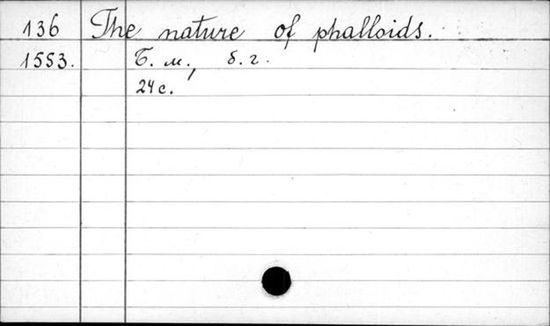 136 The nature of phalloids.
1553. Б. м., б. г.
24 с.